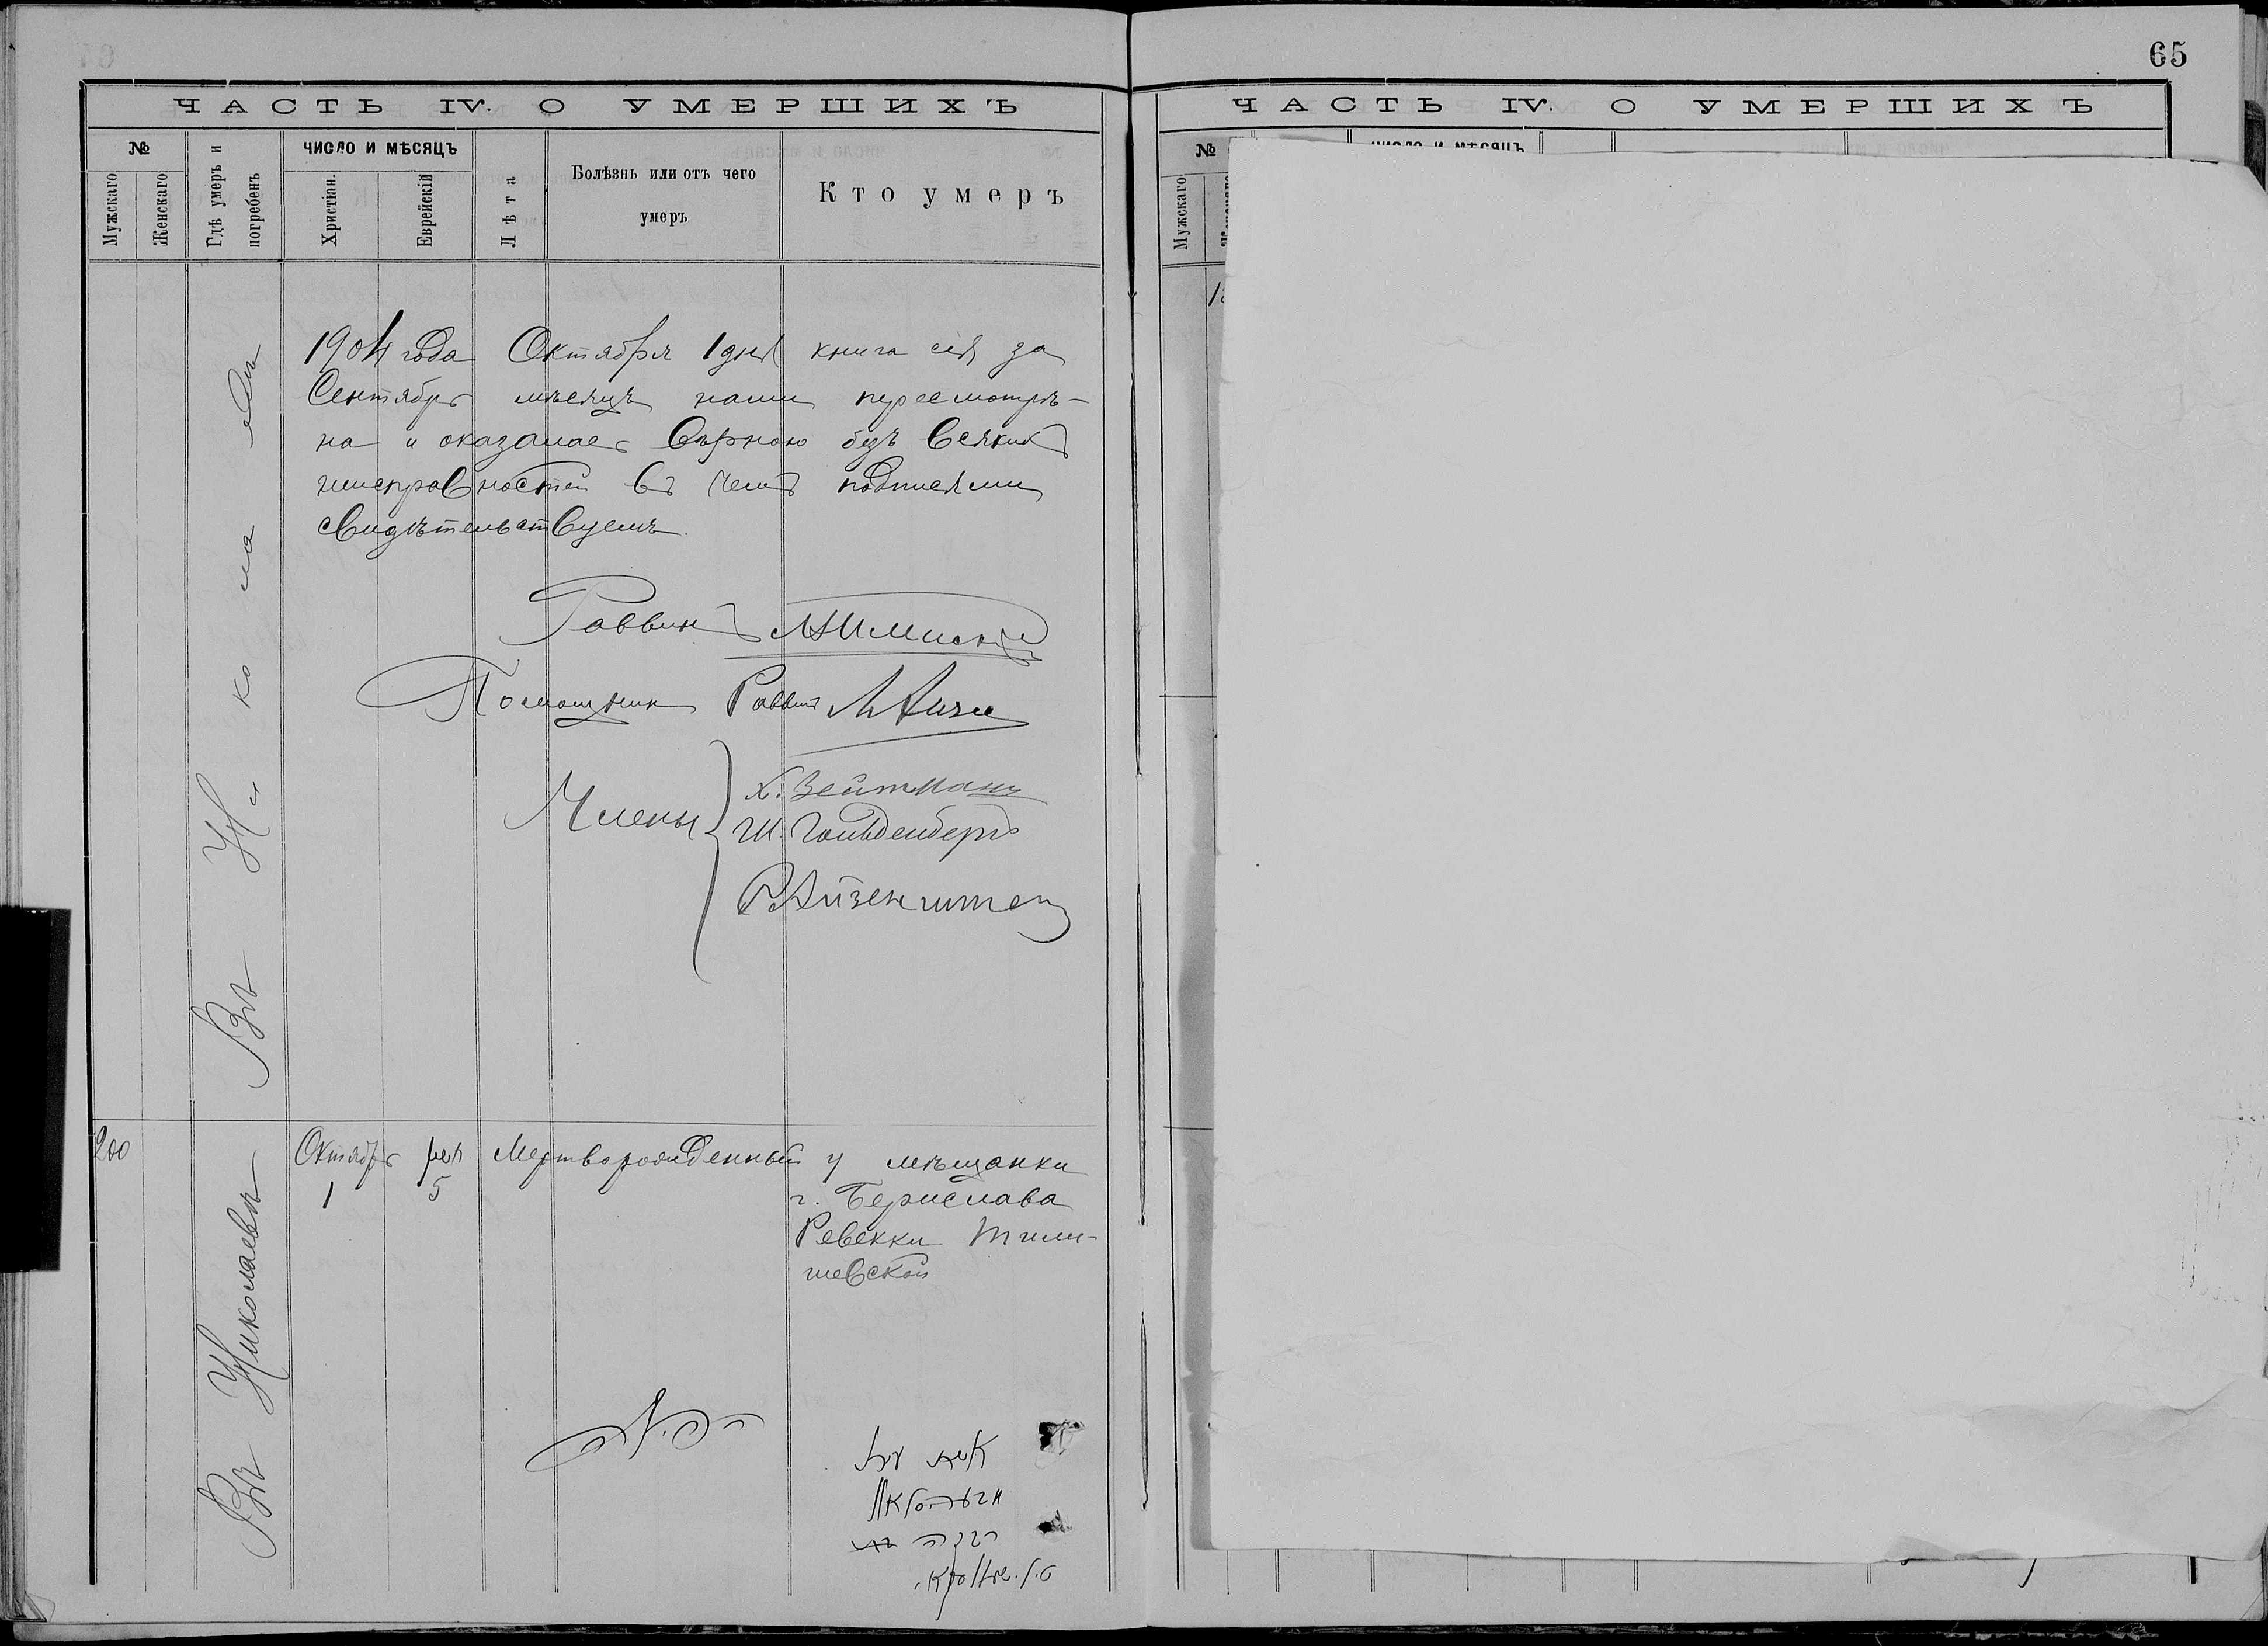 65
ЧАСТЬ IV. О УМЕРШИХЪ
№
Мужскаго
Женскаго
Гдѣ умеръ и погребенъ
ЧИСЛО И МѢСЯЦЪ
Христіан.
Еврейскій
Лѣта
Болѣзнь или отъ чего
умеръ
Кто умеръ
Въ Николаевѣ
1904 года Октября 1 дня книга сія за
Сентябрь мѣсяцъ нами пересмотрѣ-
на и оказалась вѣрною безъ всякихъ
неисправностей въ чемъ подписями
свидѣтельствуемъ.
Раввинъ
Помощник Раввина
Члены
Х. Вейтманъ
Ш. Гольденбергъ
Р. Айзенштейн
200
Въ Николаевѣ
Октябрь
1
5
Мертворожденный у мѣщанки
г. Берислава
Ревекки Тили-
шевской
אשה
ЧАСТЬ IV. О УМЕРШИХЪ
№
ЧИСЛО И МѢСЯЦЪ
Мужскаго